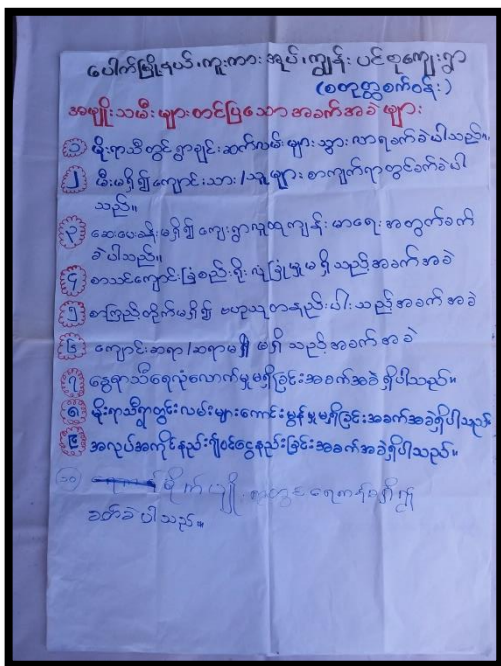 ပေါက်မြို့နယ်၊ကူးကားအုပ်၊ကျွန်းပင်စုကျေးရွာ
(စတုတ္ထစက်ဝန်း)
အမျိုးသမီးများတင်ပြသောအခက်အခဲများ
၁ မိုးရာသီတွင်ရွာချင်းဆက်လမ်းများသွားလာရခက်ခဲပါသည်။
၂ မီးမရှိ၍ကျောင်းသား/သူများ စာကျက်ရာတွင်ခက်ခဲပါ
သည်။
၃ ဆေးပေးခန်းမရှိ၍ကျေးရွာလူထုကျန်းမာရေးအတွက်ခက်
ခဲပါသည်။
၄ စာသင်ကျောင်းခြံစည်းရိုးလုံခြုံမှုမရှိသည့်အခက်အခဲ
၅ စာကြည့်တိုက်မရှိ၍ ဗဟုသုတနည်းပါးသည့်အခက်အခဲ
၆ ကျောင်းဆရာ/ဆရာမ မရှိသည့်အခက်အခဲ
၇ နွေရာသီရေလုံလောက်မှုမရှိခြင်းအခက်အခဲရှိပါသည်။
၈ မိုးရာသီရွာတွင်းလမ်းများကောင်းမွန်မှုမရှိခြင်းအခက်အခဲရှိပါသည်။
၉ အလုပ်အကိုင်နည်း၍ဝင်ငွေနည်းခြင်းအခက်အခဲရှိပါသည်။
၁၀
ခတ်ခဲပါသည်။